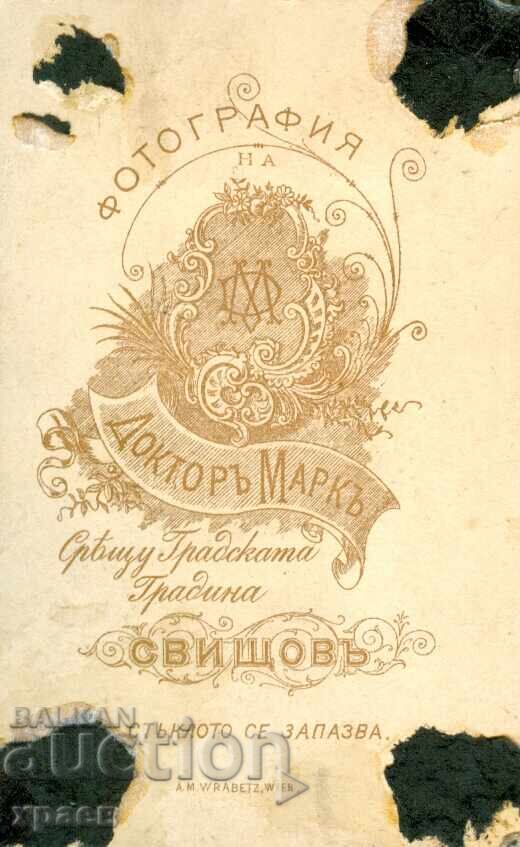 ФОТОГРАФИЯ
НА
ДМ
ДОКТОРЪ МАРКЪ
Срѣщу Градската
Градина
СВИЩОВЪ
СТЪКЛОТО СЕ ЗАПАЗВА.
A.M. WRABETZ, WIEN
BALKAN
auction
храсв